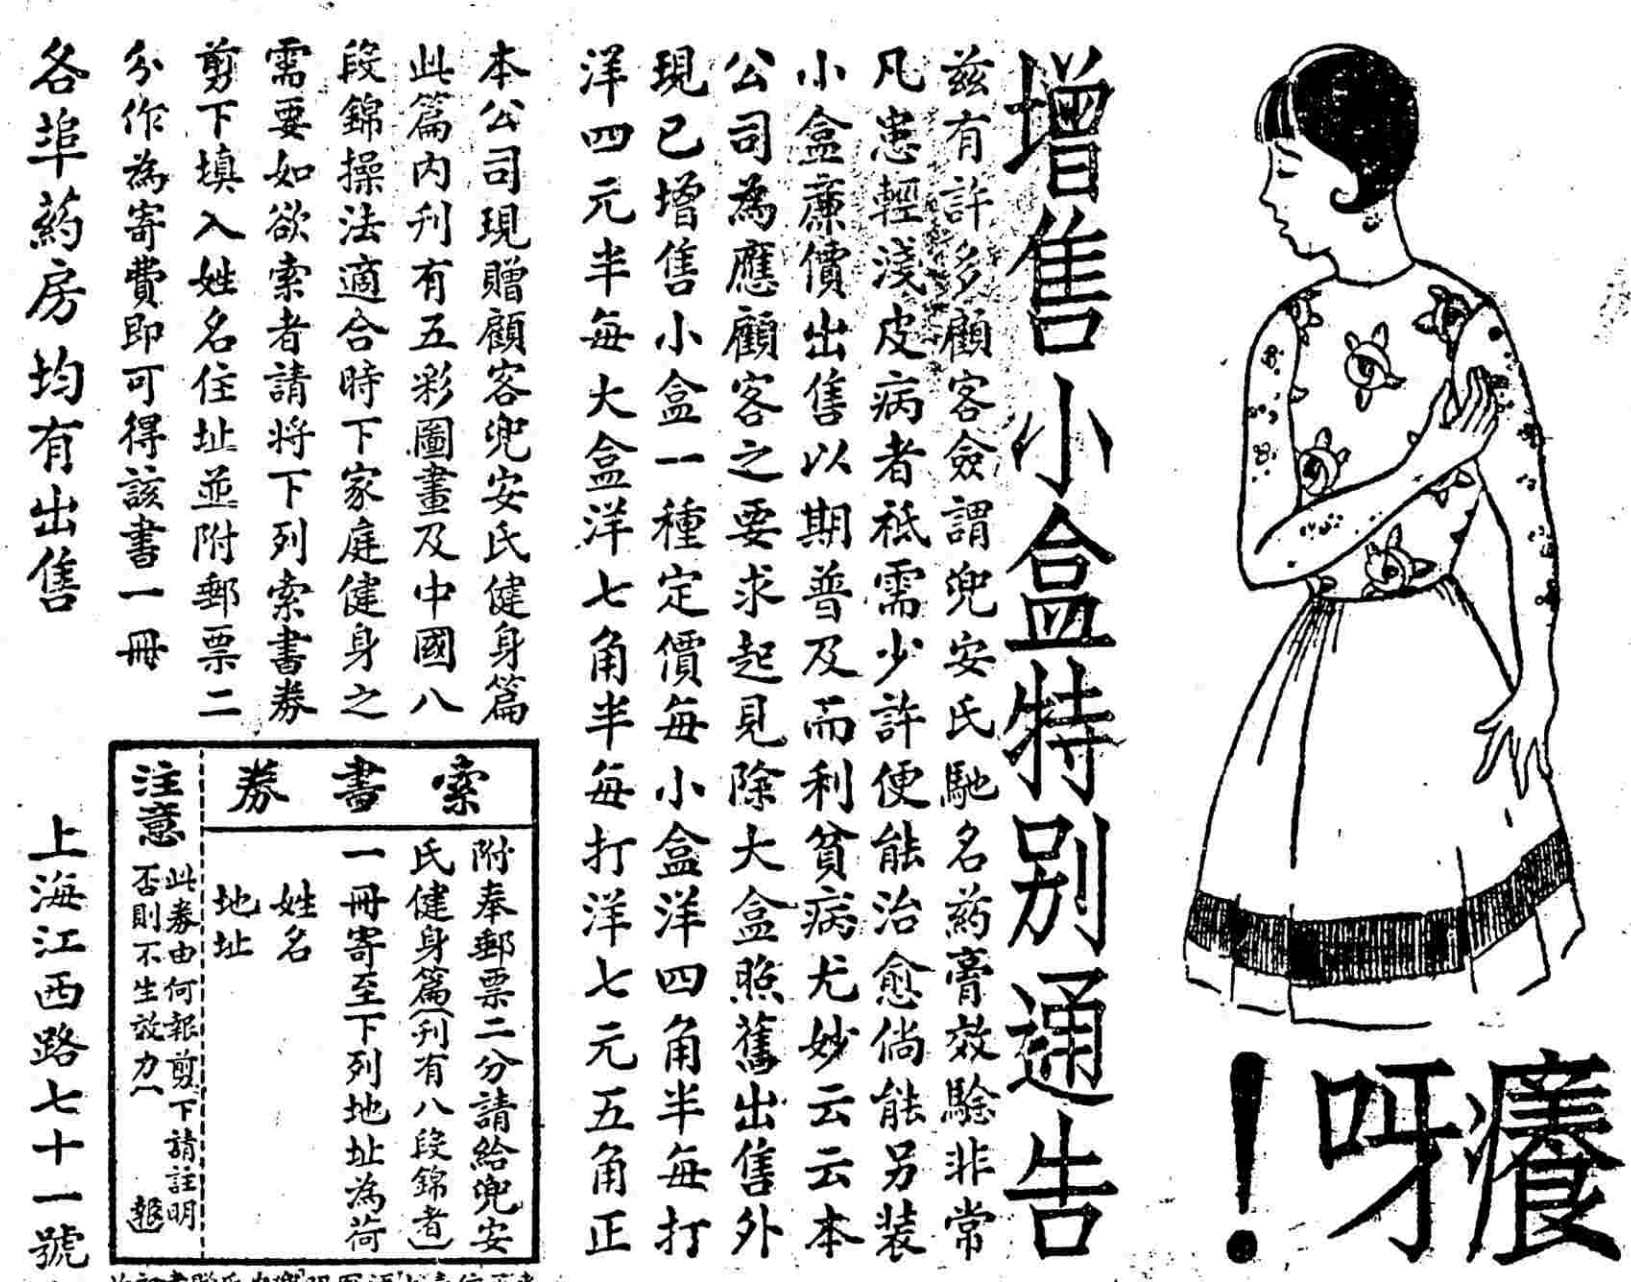 癢呀！
增售小盒特別通告
茲有許多顧客僉謂兜安氏馳名葯膏效驗非常
凡患輕淺皮病者祗需少許便能治愈倘能另装
小盒亷價出售以期普及而利貧病尤妙云云本
公司為應顧客之要求起見除大盒照舊出售外
現已增售小盒一種定價每小盒洋四角半每打
洋四元半每大盒洋七角半每打洋七元五角正
本公司現贈顧客兜安氏健身篇
此篇内刋有五彩圖畫及中國八
段錦操法適合時下家庭健身之
需要如欲索者請將下列索書券
剪下填入姓名住址並附郵票二
分作為寄費即可得該書一冊
索書券
附奉郵票二分請給兜安
氏健身篇(刋有八段錦者)
一冊寄至下列地址為荷
姓名
地址
注意
此券由何報剪下請註明
否則不生效力
報
各埠葯房均有出售
上海江西路七十一號